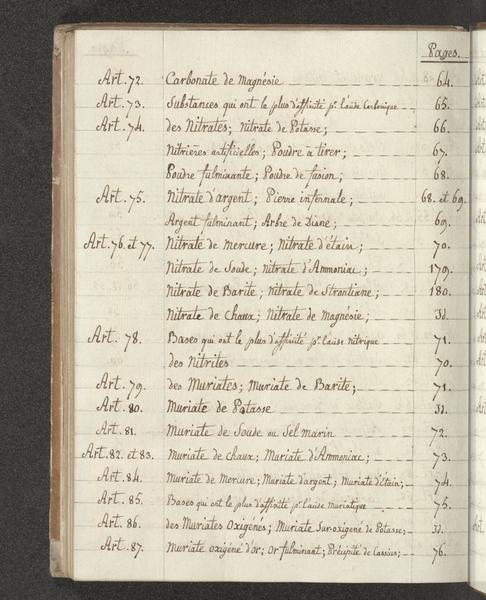 Pages.
Art. 72. Carbonate de Magnésie 64.
Art. 73. Substances qui ont le plus d'affinité pr. l'acide Carbonique 65.
Art. 74. des Nitrates; Nitrate de Potasse; 66.
Nitrières artificielles; Poudre à tirer; 67.
Poudre fulminante; Poudre de fusion; 68.
Art. 75. Nitrate d'argent; Pierre infernale; 68. et 69.
Argent fulminant; Arbre de Diane; 69.
Art. 76. et 77. Nitrate de mercure; Nitrate d'étain; 70.
Nitrate de Soude; Nitrate d'Ammoniac; 179.
Nitrate de Barite; Nitrate de Strontiane; 180.
Nitrate de Chaux; Nitrate de Magnésie; Id.
Art. 78. Bases qui ont le plus d'affinité pr. l'acide nitrique 71.
des Nitrites 70.
Art. 79. des Muriates; Muriate de Barite; 71.
Art. 80. Muriate de Potasse Id.
Art. 81. Muriate de Soude ou Sel marin 72.
Art. 82. et 83. Muriate de Chaux; Muriate d'Ammoniac; 73.
Art. 84. Muriate de Mercure; Muriate d'argent; Muriate d'étain; 74.
Art. 85. Bases qui ont le plus d'affinité pr. l'acide muriatique 75.
Art. 86. des Muriates Oxigénés; Muriate Sur-oxigené de Potasse Id.
Art. 87. Muriate oxigéné d'or; Or fulminant; Précipité de Cassius; 76.